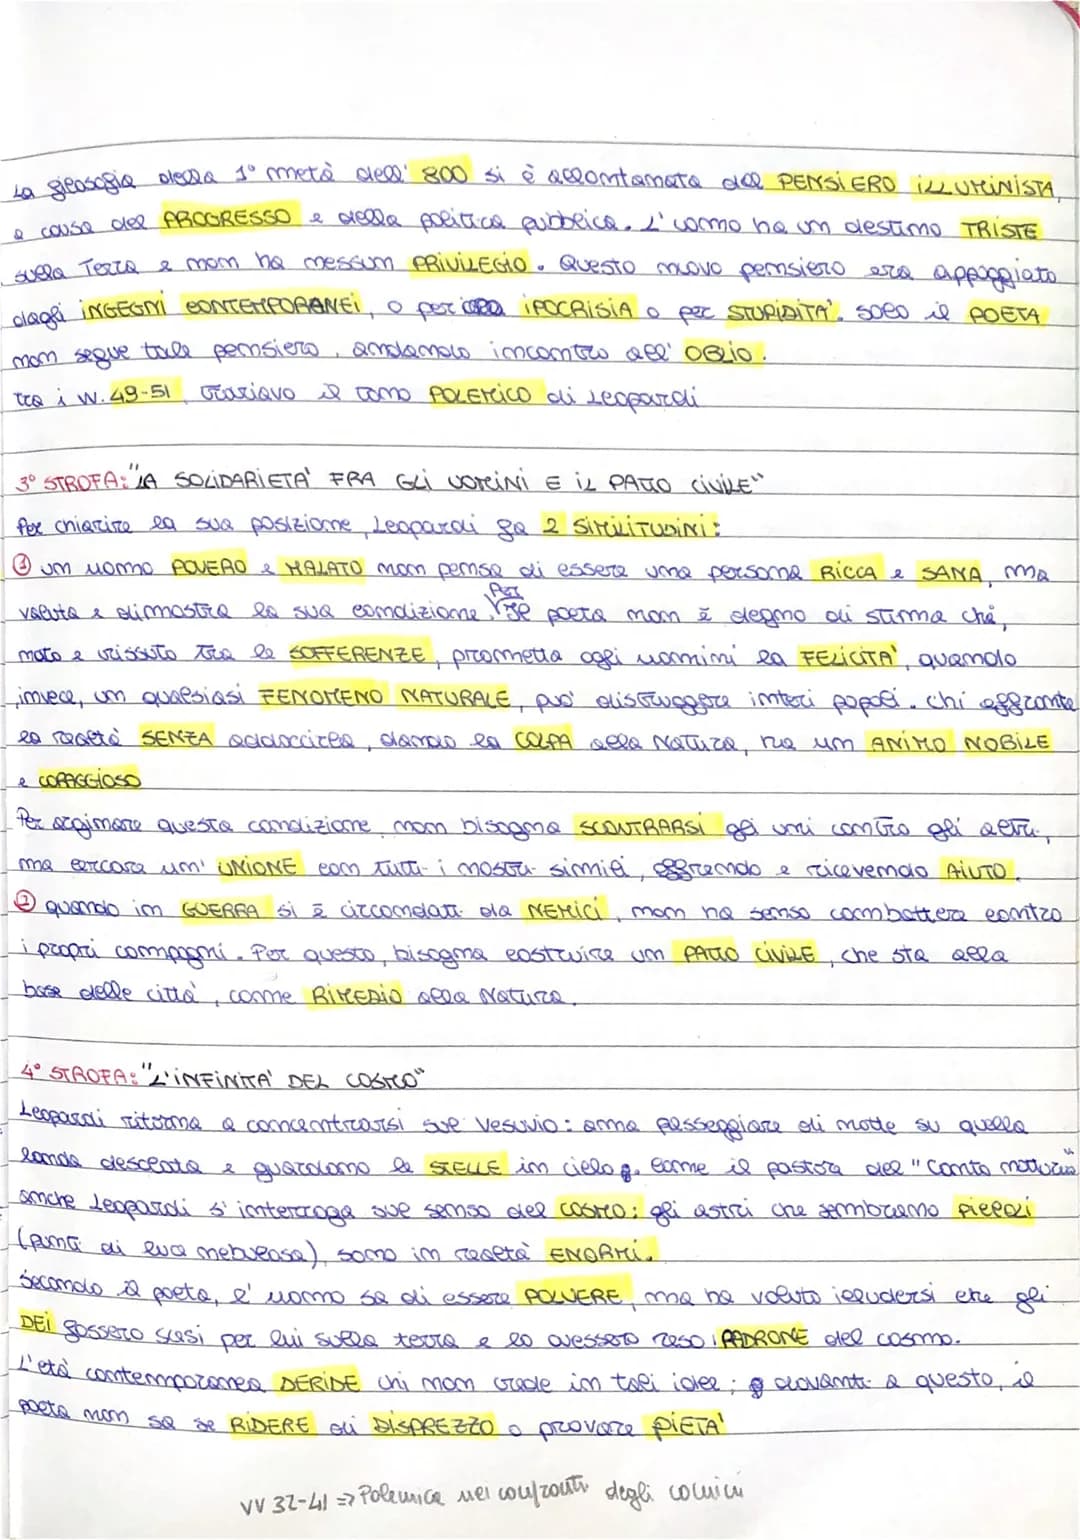 La filosofia della 1° metà dell' 800 si è allontanata dal PENSIERO ILLUMINISTA,
a causa del PROGRESSO e della politica pubblica. L'uomo ha un destino TRISTE
sulla Terra e non ha nessun PRIVILEGIO. Questo nuovo pensiero era appoggiato
dagli INGEGNI CONTEMPORANEI, o per IPOCRISIA o per STUPIDITA'. Solo il POETA
non segue tale pensiero, andando incontro all' OBLIO.
Tra i vv. 49-51, troviavo il tono POLEMICO di Leopardi
3° STROFA: "LA SOLIDARIETA' FRA GLI UOMINI E IL PATTO CIVILE"
Per chiarire la sua posizione, Leopardi fa 2 SIMILITUDINI:
① un uomo POVERO e MALATO non pensa di essere una persona RICCA e SANA, ma
valuta e dimostra la sua condizione. Per Se poeta non è degno di stima chi,
nato e vissuto tra le SOFFERENZE, prometta agli uomini la FELICITA', quando
invece, un qualsiasi FENOMENO NATURALE, può distruggere interi popoli. Chi affronta
la realtà SENZA addolcirla, dando la COLPA alla Natura, ha un ANIMO NOBILE
e CORAGGIOSO
Per arginare questa condizione, non bisogna SCONTRARSI gli uni contro gli altri,
ma cercare un' UNIONE con tutti i nostri simili, offrendo e ricevendo AIUTO.
② quando in GUERRA si è circondati da NEMICI, non ha senso combattere contro
i propri compagni. Per questo, bisogna costruire un PATTO CIVILE, che sta alla
base delle città, come RIMEDIO alla Natura.
4° STROFA: "L'INFINITA' DEL COSMO"
Leopardi ritorna a concentrarsi sul Vesuvio: ama passeggiare di notte su quella
landa desolata e guardano le STELLE in cielo. Come il pastore del "Canto notturno"
anche Leopardi s'interroga sul senso del COSMO: gli astri che sembrano PICCOLI
(punti di luce nebulosa), sono in realtà ENORMI.
Secondo il poeta, l'uomo sa di essere POLVERE, ma ha voluto illudersi che gli
DEI fossero scesi per lui sulla terra e lo avessero reso PADRONE del cosmo.
L'età contemporanea DERIDE chi non crede in tali idee; davanti a questo, il
poeta non sa se RIDERE di DISPREZZO o provare PIETA'
VV 32-41 => Polemica nei confronti degli